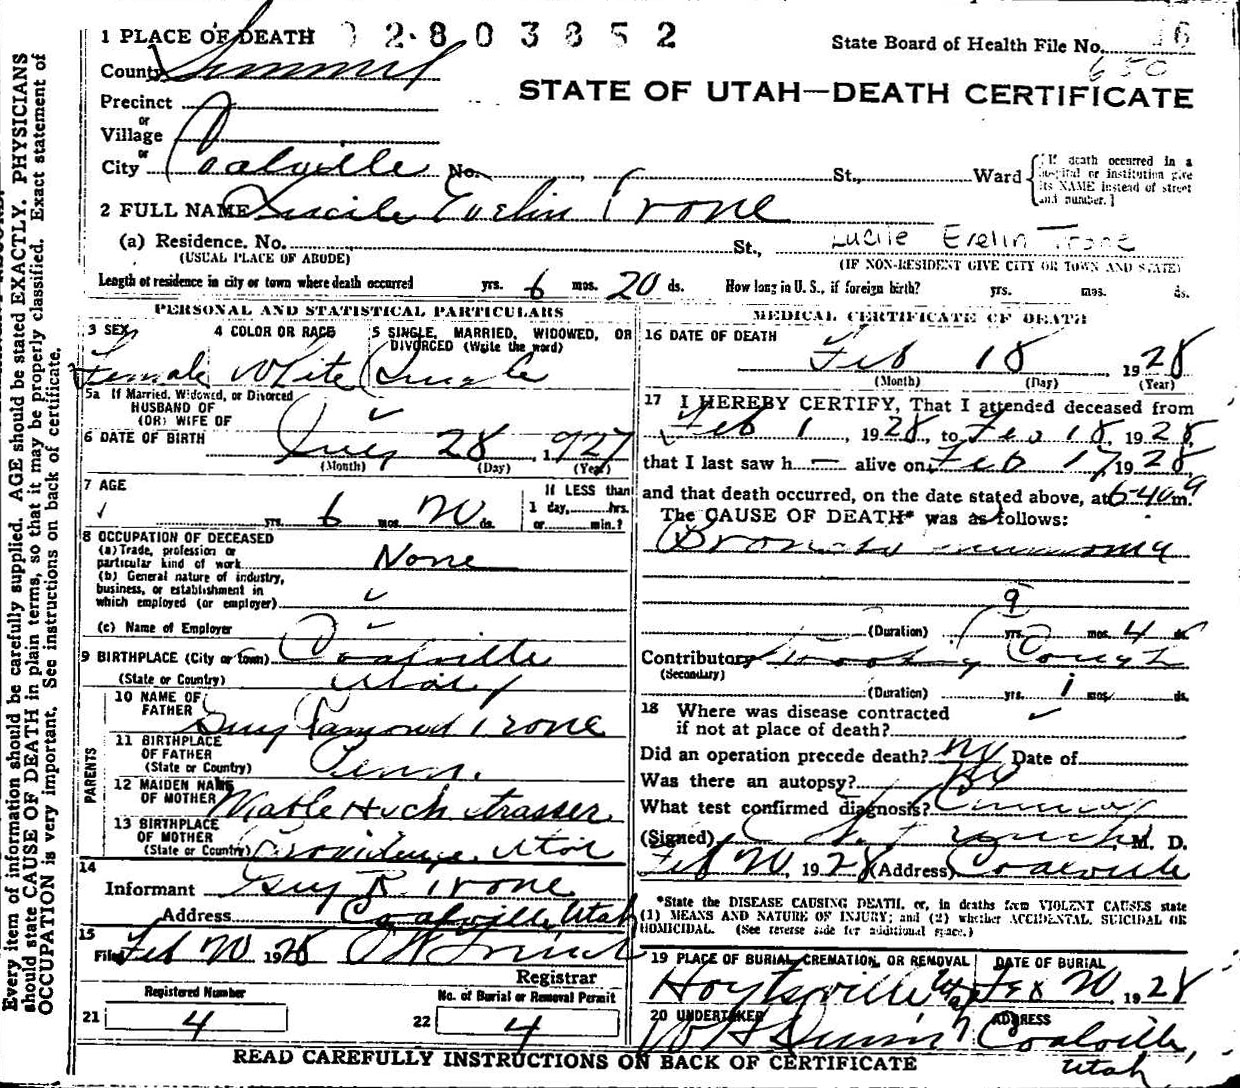 1 PLACE OF DEATH 02803852 State Board of Health File No. 16
650
County Summit
STATE OF UTAH—DEATH CERTIFICATE
Precinct
or
Village
or
City Coalville No. St., Ward { [If death occurred in a hospital or institution give its NAME instead of street and number.]
2 FULL NAME Lucile Evelin Trone
(a) Residence. No. St., Lucile Evelin Trone
(USUAL PLACE OF ABODE) (IF NON-RESIDENT GIVE CITY OR TOWN AND STATE)
Length of residence in city or town where death occurred yrs. 6 mos. 20 ds. How long in U. S., if foreign birth? yrs. mos. ds.
PERSONAL AND STATISTICAL PARTICULARS
3 SEX 4 COLOR OR RACE 5 SINGLE, MARRIED, WIDOWED, OR DIVORCED (Write the word)
Female White Single
5a If Married, Widowed, or Divorced
HUSBAND OF
(OR) WIFE OF
6 DATE OF BIRTH July 28, 1927
(Month) (Day) (Year)
7 AGE If LESS than
1 day, hrs.
yrs. 6 mos. 20 ds. or min.?
8 OCCUPATION OF DECEASED
(a) Trade, profession or
particular kind of work None
(b) General nature of industry,
business, or establishment in
which employed (or employer)
(c) Name of Employer
9 BIRTHPLACE (City or town) Coalville
(State or Country) Utah
PARENTS
10 NAME OF
FATHER Guy Ramond Trone
11 BIRTHPLACE
OF FATHER
(State or Country) Penn.
12 MAIDEN NAME
OF MOTHER Mable Huchstrasser
13 BIRTHPLACE
OF MOTHER
(State or Country) Providence, Utah
14
Informant Guy R. Trone
Address Coalville, Utah
15
Filed Feb 20 1928
Registrar
Registered Number No. of Burial or Removal Permit
21 4 22 4
MEDICAL CERTIFICATE OF DEATH
16 DATE OF DEATH
Feb 18 1928
(Month) (Day) (Year)
17 I HEREBY CERTIFY, That I attended deceased from
Feb 1, 1928, to Feb 18, 1928,
that I last saw h — alive on Feb 17, 1928,
and that death occurred, on the date stated above, at 6-40 m. a
The CAUSE OF DEATH* was as follows:
Broncho pneumonia
9
(Duration) yrs. mos. 4 ds.
Contributory Whooping Cough
(Secondary)
(Duration) yrs. 1 mos. ds.
18 Where was disease contracted
if not at place of death?
Did an operation precede death? No Date of
Was there an autopsy? No
What test confirmed diagnosis? Clinical
(Signed) M. D.
Feb 20, 1928 (Address) Coalville
*State the DISEASE CAUSING DEATH, or, in deaths from VIOLENT CAUSES state
(1) MEANS AND NATURE OF INJURY; and (2) whether ACCIDENTAL, SUICIDAL OR
HOMICIDAL. (See reverse side for additional space.)
19 PLACE OF BURIAL, CREMATION, OR REMOVAL DATE OF BURIAL
Hoytsville Utah Feb 20 1928
20 UNDERTAKER ADDRESS
Coalville,
Utah
READ CAREFULLY INSTRUCTIONS ON BACK OF CERTIFICATE
Every item of information should be carefully supplied. AGE should be stated EXACTLY. PHYSICIANS
should state CAUSE OF DEATH in plain terms, so that it may be properly classified. Exact statement of
OCCUPATION is very important. See instructions on back of certificate.